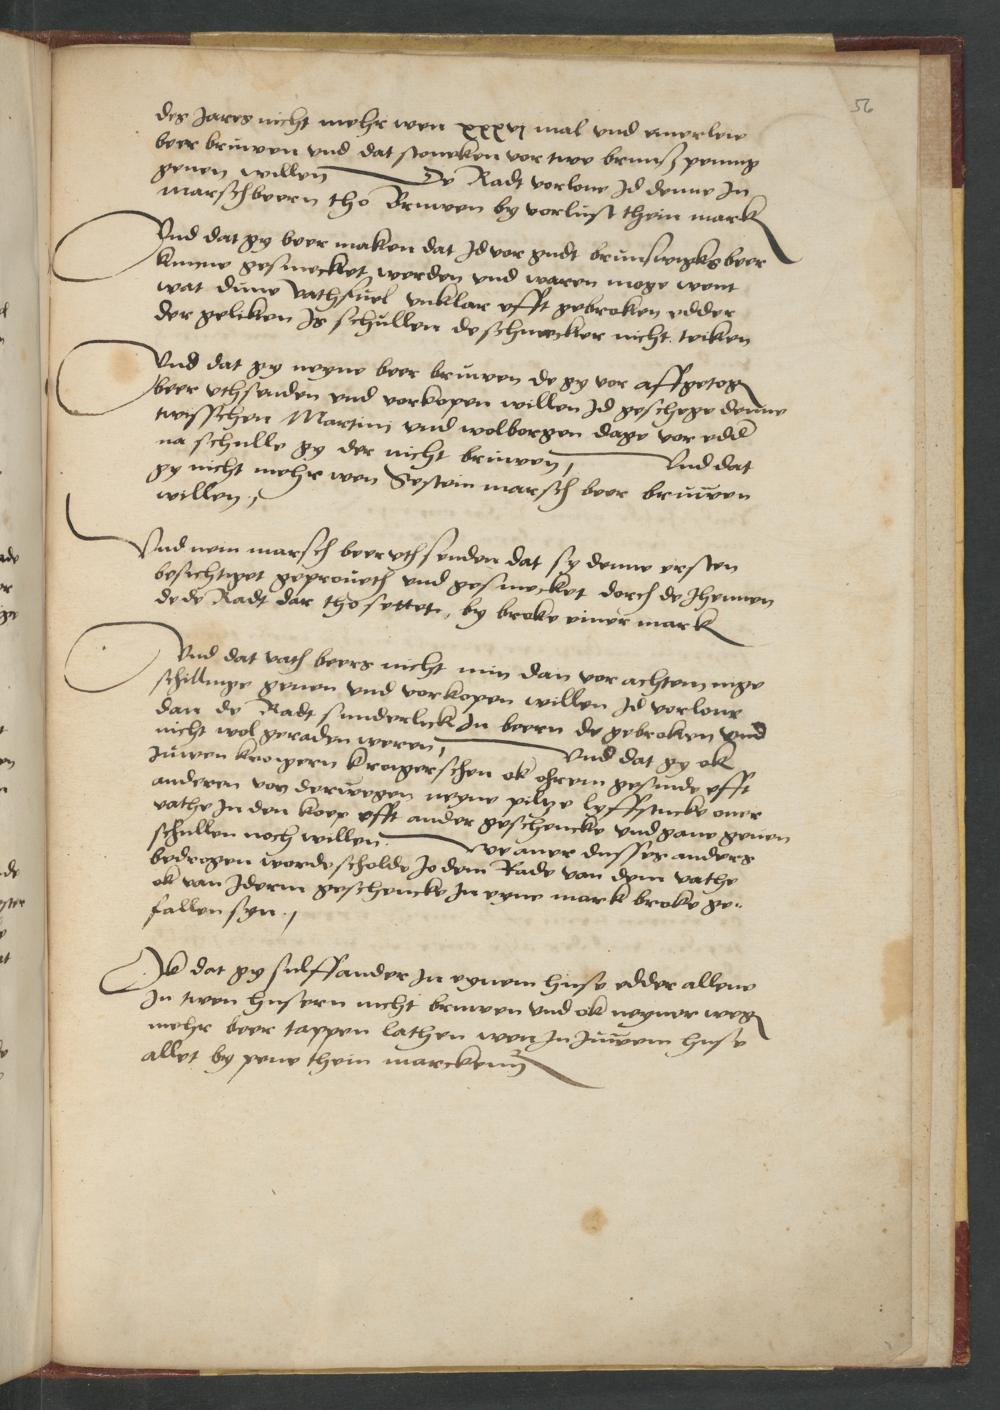 56
des Jares nicht mehr wen xxxvj mal vnd einerleie
beer bruwen vnd dat stoueken vor twe brunß penning
geuen willen De Radt vorlone Jd denne In
marschbeern tho Bruwen by vorlust thein mark
Vnd dat gy beer maken dat Jd vor gudt brunswigks beer
kunne gesmecket werden vnd waren moge went
wat dunne vathfuel vnklar efft gebroken edder
der geliken Js schullen de schmecker nicht teiken
Vnd dat gy neyne beer bruwen de gy vor affgetog
beer vthsenden vnd vorkopen willen Jd geschege denne
twisschen Martinj vnd wolborgen dage vor edd
na schulle gy der nicht bruwen, Vnd dat
gy nicht mehr wen Sestein marsch beer bruwen
willen,
Vnd nein marsch beer vthsenden dat sy denne ersten
besichtiget geproueth vnd gesmecket dorch de Jhennen
de de Radt dar tho settet, by broke einer mark
Vnd dat vath beers nicht min dan vor achtein nige
schillinge geuen vnd vorkopen willen Jd vorlone
dan de Radt sunderlick In beern de gebroken vnd
nicht wol geraden weren, Vnd dat gy ok
Juwen krogern krogerschen ok ohrem gesinde efft
anderen von derwegen neyne pilge lyffstucke ouer
vathe In den koep efft ander geschencke vnd gaue geuen
schullen noch willen We auer dusses anders
bedragen worde scholde Jo dem Rade van dem vathe
ok van Jderm geschencke In eyne mark broke ge-
fallen syn,
Ok dat gy sulffander In eynem huse edder allene
In twen husern nicht bruwen vnd ok neyner weg
mehr beer tappen lathen wen In Juwem huse
allet by pene thein marcken